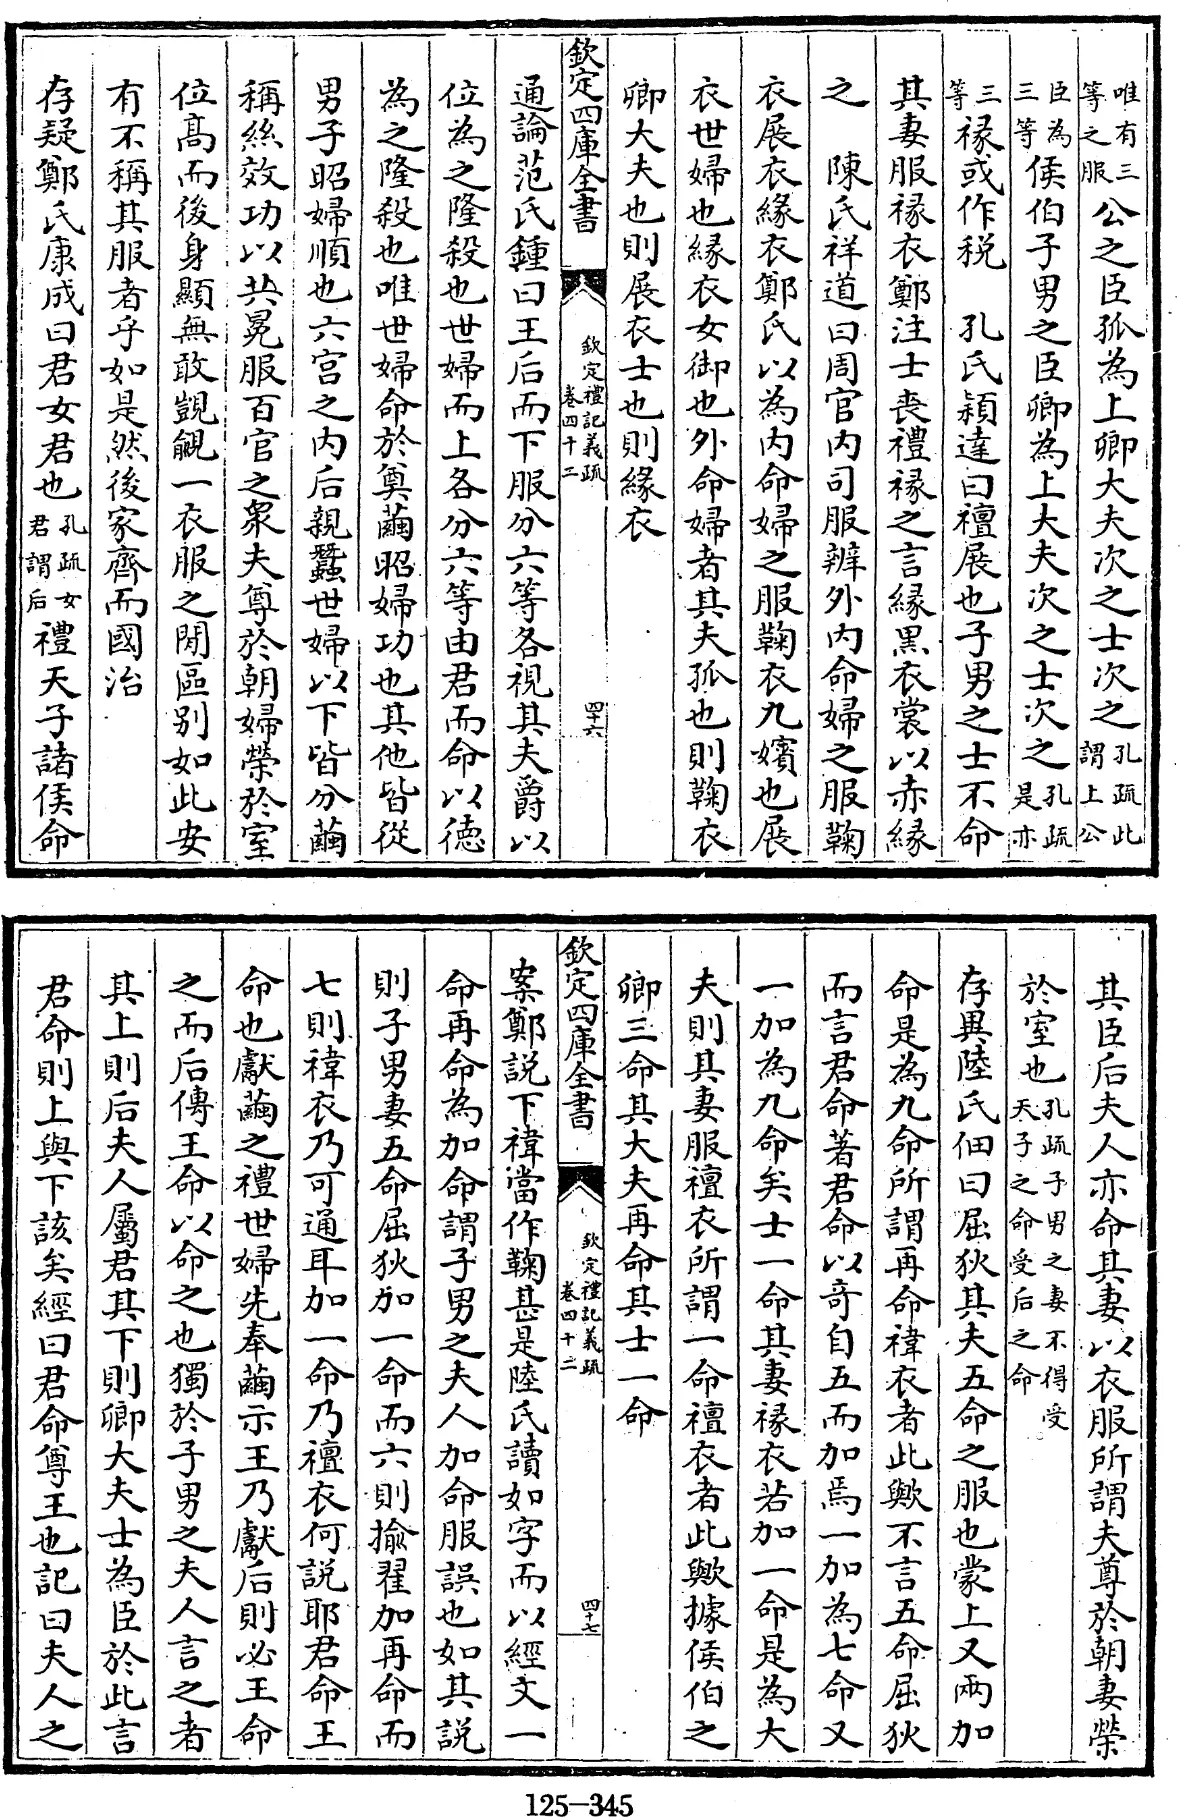 唯有三等之服公之臣孤為上卿大夫次之士次之孔疏此謂上公
臣為三等侯伯子男之臣卿為上大夫次之士次之孔疏是亦
三等褖或作稅　孔氏穎達曰襢展也子男之士不命
其妻服褖衣鄭注士喪禮褖之言緣黑衣裳以赤緣
之　陳氏祥道曰周官內司服辨外內命婦之服鞠
衣展衣緣衣鄭氏以為內命婦之服鞠衣九嬪也展
衣世婦也緣衣女御也外命婦者其夫孤也則鞠衣
卿大夫也則展衣士也則緣衣
欽定四庫全書
欽定禮記義疏
卷四十二
四十六
通論范氏鍾曰王后而下服分六等各視其夫爵以
位為之隆殺也世婦而上各分六等由君而命以德
為之隆殺也唯世婦命於奠繭昭婦功也其他皆從
男子昭婦順也六宮之內后親蠶世婦以下皆分繭
稱絲效功以共冕服百官之衆夫尊於朝婦榮於室
位高而後身顯無敢覬覦一衣服之間區别如此安
有不稱其服者乎如是然後家齊而國治
存疑鄭氏康成曰君女君也孔疏女君謂后禮天子諸侯命
其臣后夫人亦命其妻以衣服所謂夫尊於朝妻榮
於室也孔疏子男之妻不得受天子之命受后之命
存異陸氏佃曰屈狄其夫五命之服也蒙上又兩加
命是為九命所謂再命褘衣者此歟不言五命屈狄
而言君命著君命以竒自五而加焉一加為七命又
一加為九命矣士一命其妻褖衣若加一命是為大
夫則其妻服襢衣所謂一命襢衣者此歟據侯伯之
卿三命其大夫再命其士一命
欽定四庫全書
欽定禮記義疏
卷四十二
四十七
案鄭說下褘當作鞠甚是陸氏讀如字而以經文一
命再命為加命謂子男之夫人加命服誤也如其說
則子男妻五命屈狄加一命而六則揄翟加再命而
七則褘衣乃可通耳加一命乃襢衣何說耶君命王
命也獻繭之禮世婦先奉繭示王乃獻后則必王命
之而后傳王命以命之也獨於子男之夫人言之者
其上則后夫人屬君其下則卿大夫士為臣於此言
君命則上與下該矣經曰君命尊王也記曰夫人之
125-345